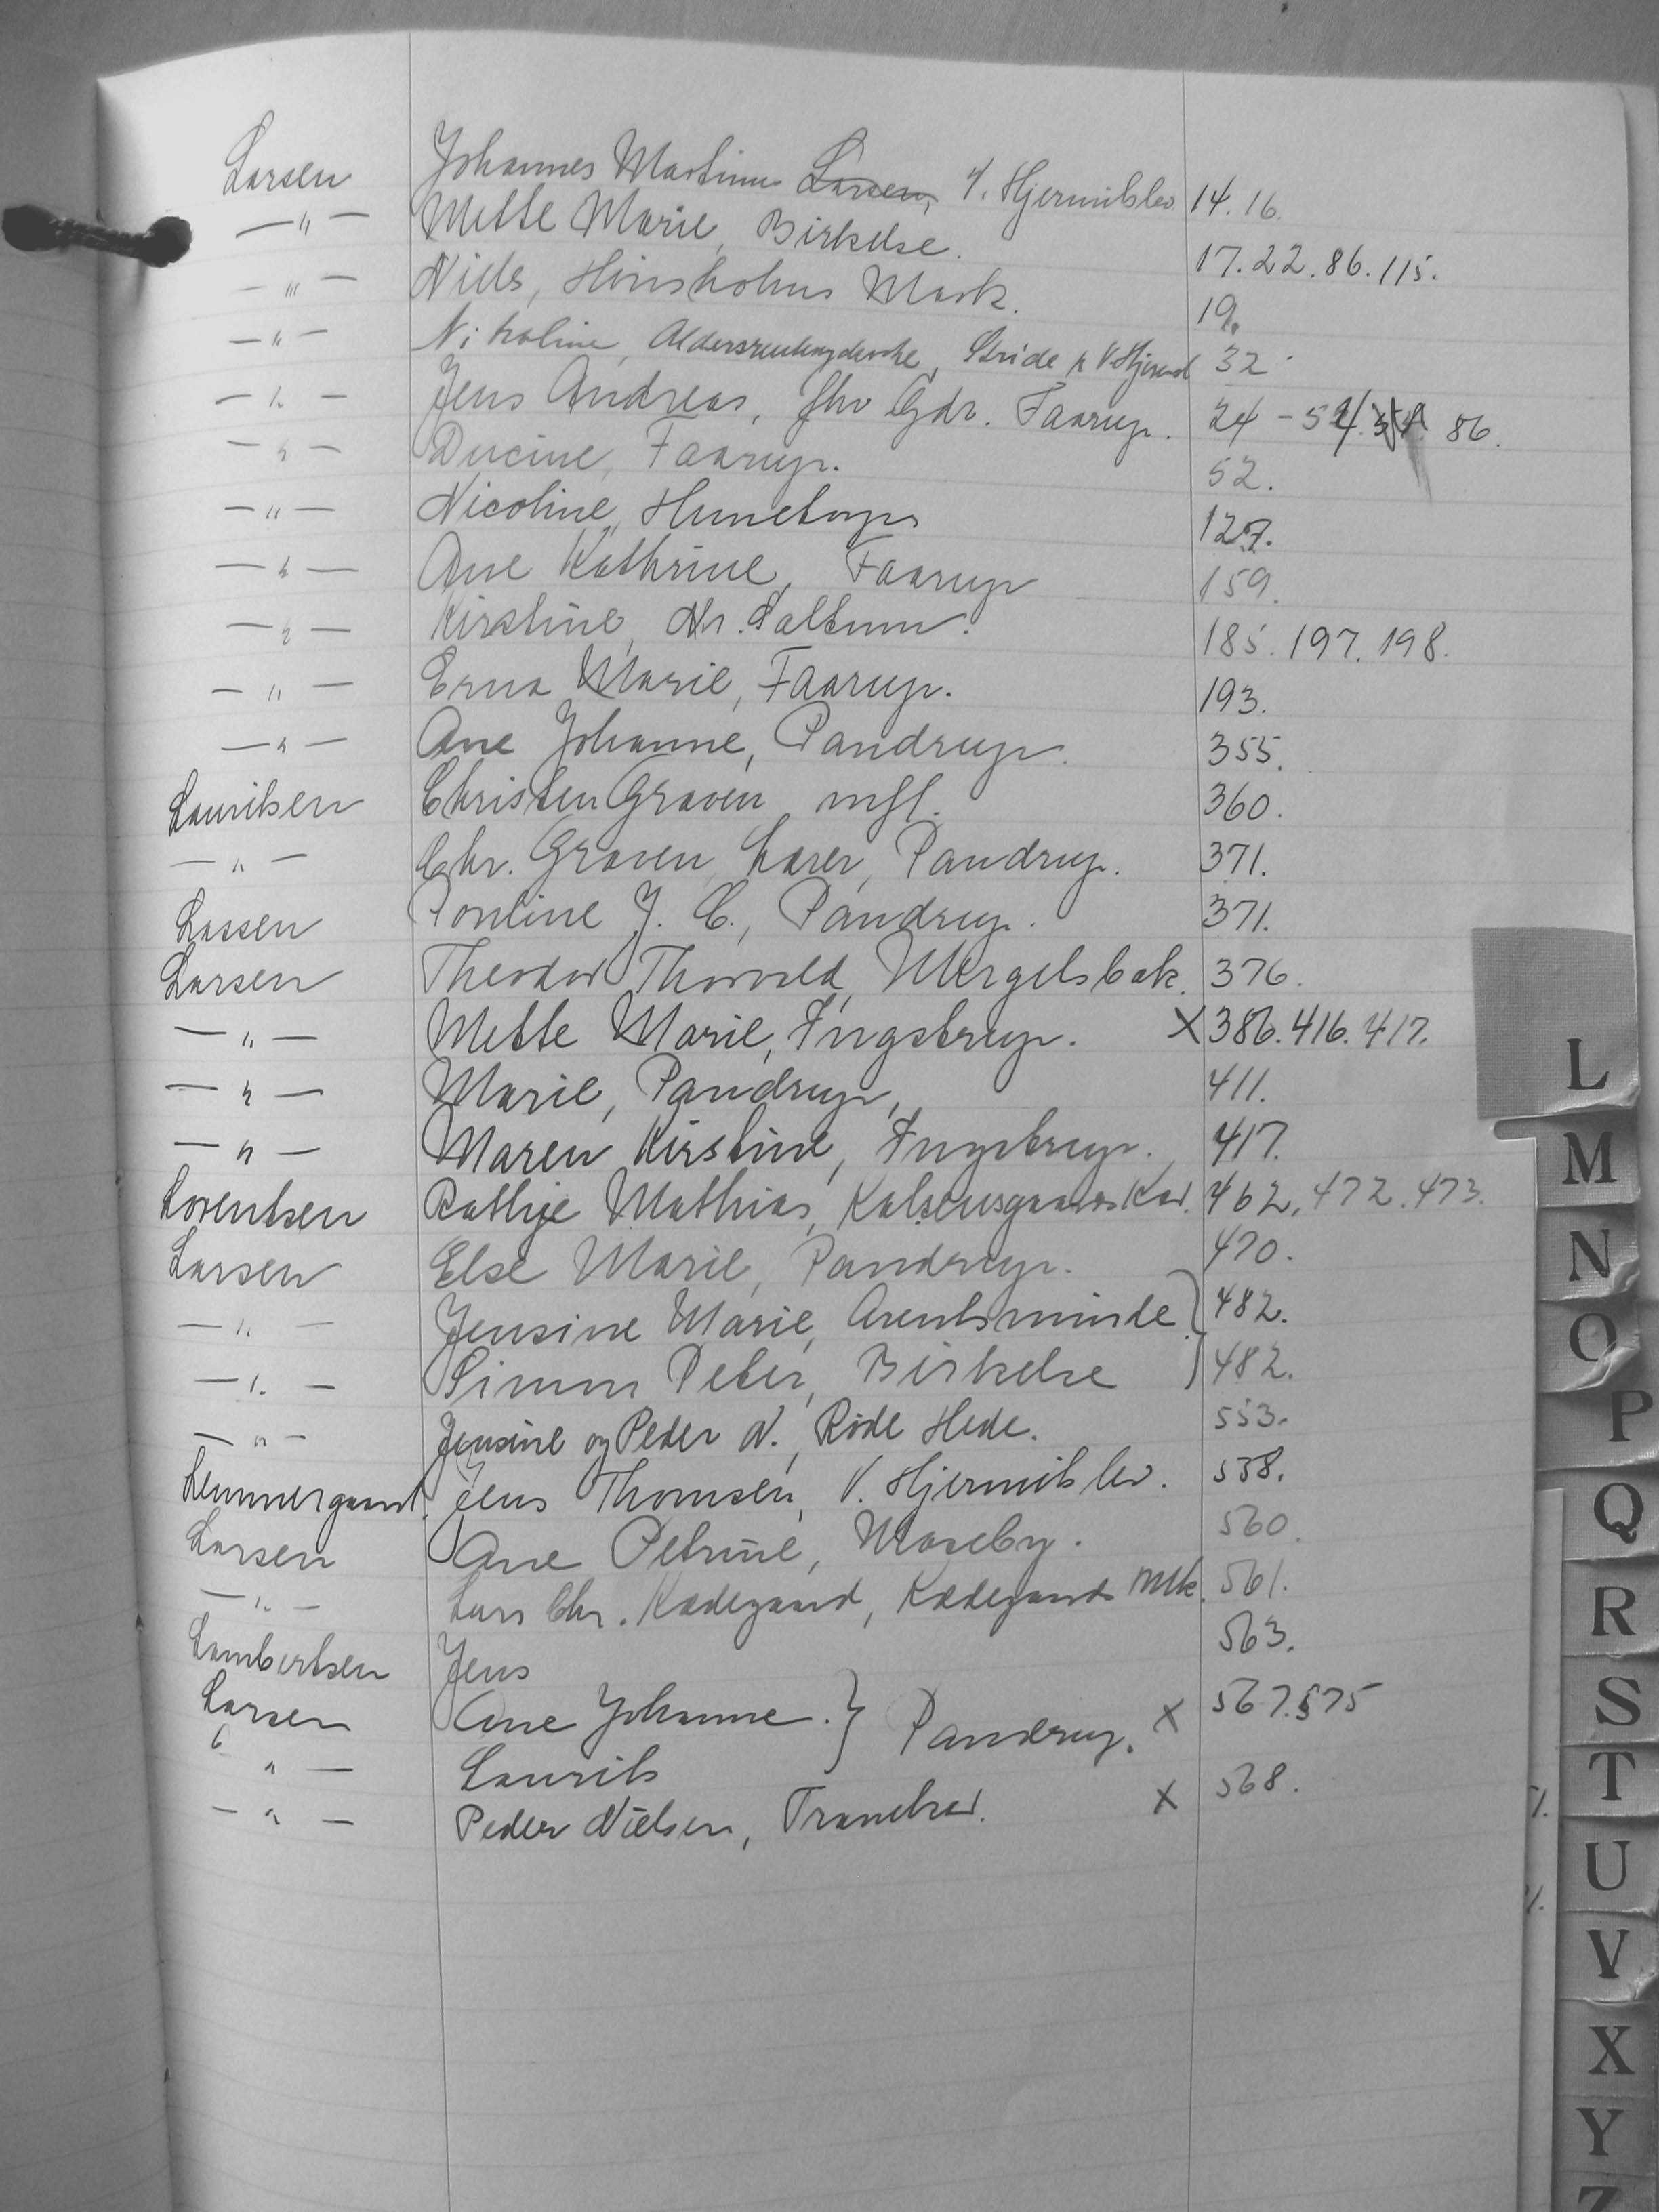 Larsen Johannes Martinus Larsen, V. Hjermitslev 14. 16.
—"— Mette Marie, Birkelse. 17. 22. 86. 115.
—"— Niels, Hinsholms Mark. 19.
—"— Nikoline, Aldersrentenyderske, V Hjermsl 32
—"— Jens Andreas, fhv Gdr. Faarup. 24 - 54 86.
—"— Ducine, Faarup. 52.
—"— Nicoline, Hunetorp 127.
—"— Ane Kathrine, Faarup 159.
—"— Kirstine, Nr. Saltum. 185. 197. 198.
—"— Erna Marie, Faarup. 193.
—"— Ane Johanne, Pandrup. 355.
Lauritsen Christen Graven mfl. 360.
—"— Chr. Graven, Lærer, Pandrup. 371.
Lassen Pouline J. C., Pandrup. 371.
Larsen Theodor Thorvald, Mergelsbak. 376.
—"— Mette Marie, Ingstrup. X 386. 416. 417.
—"— Marie, Pandrup, 411.
—"— Maren Kirstine, Ingstrup. 417.
Lorentsen Bathje Mathias, Kalsensgaards Kær. 462. 472. 473.
Larsen Else Marie, Pandrup. 470.
—"— Jensine Marie, Arentsminde } 482.
—"— Simon Peter, Birkelse } 482.
—"— Jensine og Peder N., Røde Hede. 553.
Lemmergaard. Jens Thomsen, V. Hjermitslev. 538.
Larsen Ane Petrine, Moseby. 560.
—"— Lars Chr. Kædegaard, Kædegaards Mk. 561.
Lambertsen Jens 563.
Larsen Ane Johanne. } Pandrup. X 567. 575
" — Laurits
—"— Peder Nielsen, Tranekær. X 568.
L
M
N
O
P
Q
R
S
T
U
V
X
Y
Z